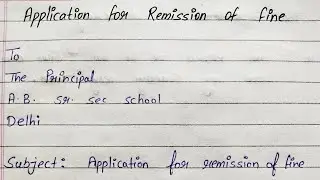 Application for Remission of fine
To
The Principal
A.B. sr. sec school
Delhi
Subject: Application for remission of fine